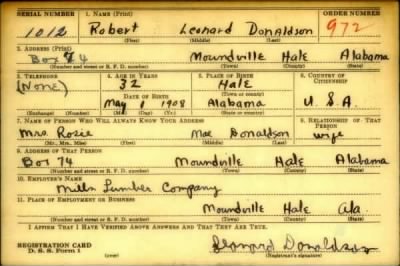 SERIAL NUMBER 1. NAME (Print) ORDER NUMBER
1012 Robert Leonard Donaldson 972
(First) (Middle) (Last)
2. ADDRESS (Print)
Box 74 Moundville Hale Alabama
(Number and street or R. F. D. number) (Town) (County) (State)
3. TELEPHONE 4. AGE IN YEARS 5. PLACE OF BIRTH 6. COUNTRY OF CITIZENSHIP
(None) 32 Hale
DATE OF BIRTH (Town or county)
May 1 1908 Alabama U.S.A.
(Exchange) (Number) (Mo.) (Day) (Yr.) (State or country)
7. NAME OF PERSON WHO WILL ALWAYS KNOW YOUR ADDRESS 8. RELATIONSHIP OF THAT PERSON
Mrs. Rosie Mae Donaldson wife
(Mr., Mrs., Miss) (First) (Middle) (Last)
9. ADDRESS OF THAT PERSON
Box 74 Moundville Hale Alabama
(Number and street or R. F. D. number) (Town) (County) (State)
10. EMPLOYER'S NAME
Lumber Company
11. PLACE OF EMPLOYMENT OR BUSINESS
Moundville Hale Ala.
(Number and street or R. F. D. number) (Town) (County) (State)
I AFFIRM THAT I HAVE VERIFIED ABOVE ANSWERS AND THAT THEY ARE TRUE.
REGISTRATION CARD Leonard Donaldson
D. S. S. Form 1 (over) (Registrant's signature)